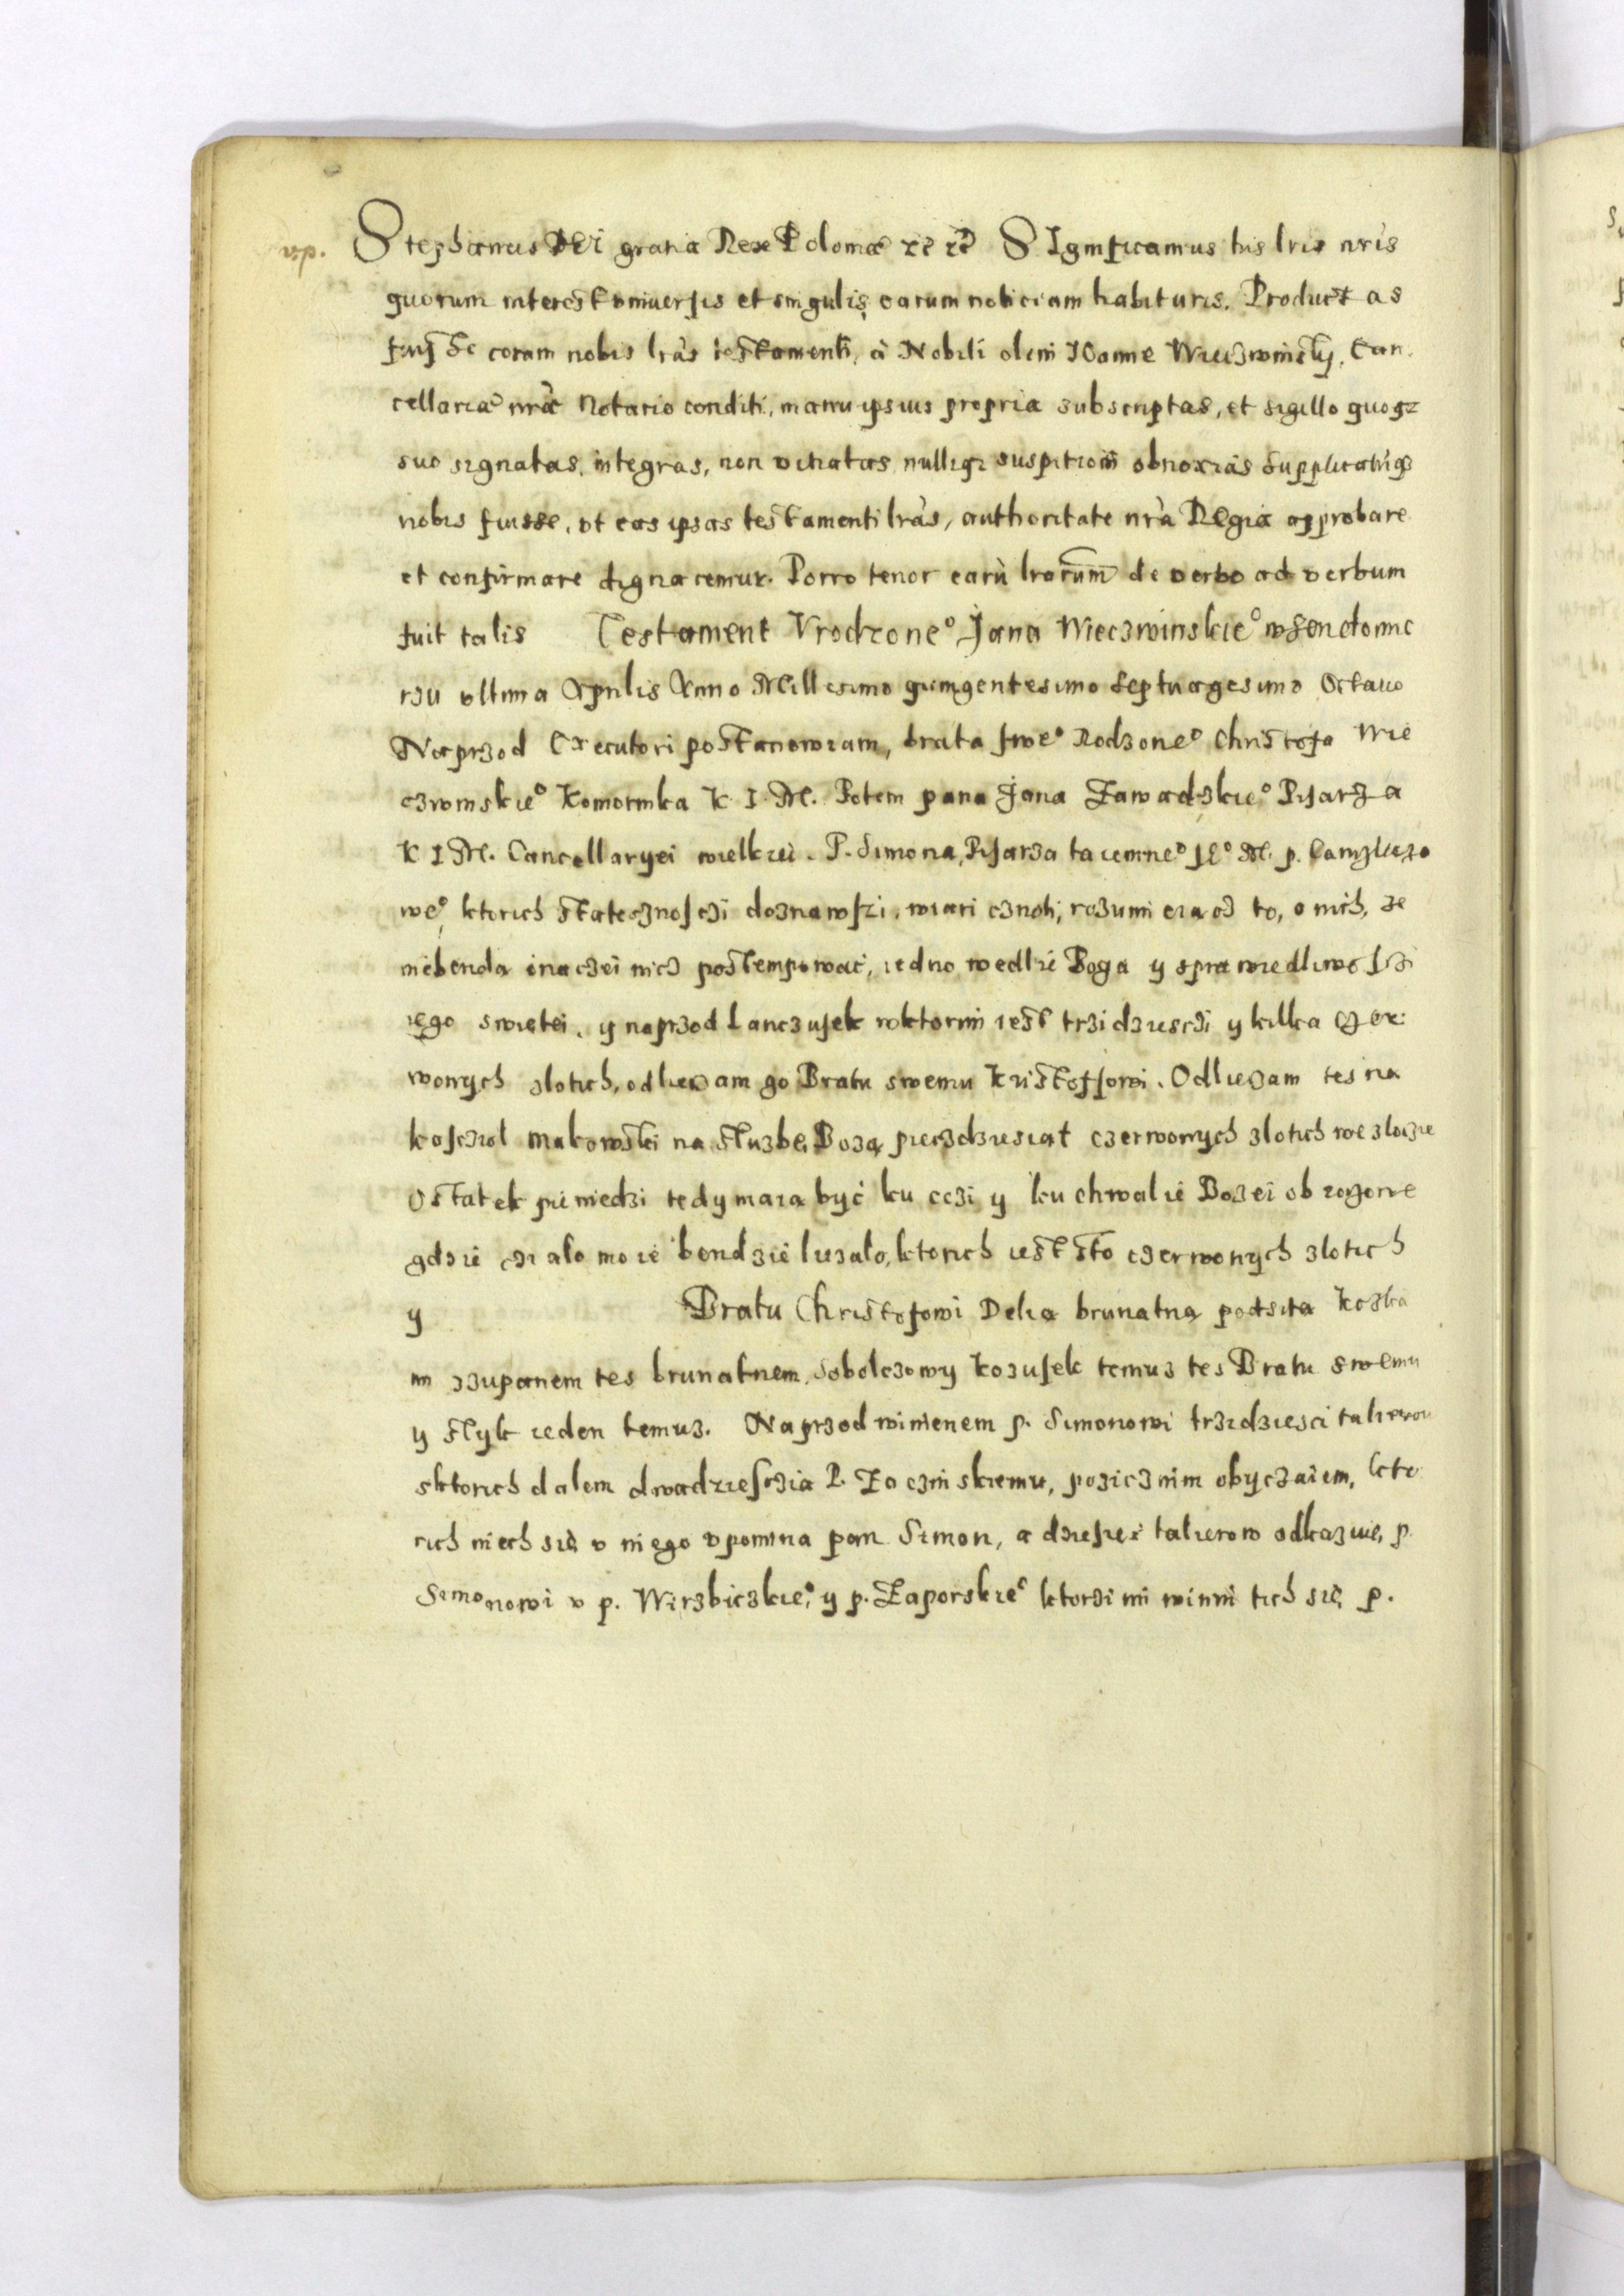 v.p. Stephanus DEI gratia Rex Poloniæ rc̄ rc̄ SIgnificamus his lris nrīs
quorum interest vniuersis et singulis, earum noticiam habituris. Productas
fuisse coram nobis lras testamenti, à Nobili olim IOanne Wieczwinsky, Can-
cellariæ nræ Notario conditi, manu ipsius propria subscriptas, et sigillo quoqz
suo signatas, integras, non vitiatas, nulliqz suspitioni obnoxias supplicatūqz
nobis fuisse, vt eas ipsas testamenti lrās, authoritate nrā REgia approbare
et confirmare dignaremur. Porro tenor earū lrarum de verbo ad verbum
fuit talis Testament Vrodzone° Jana Wieczwinskie° wSendomie
rzu vltima Aprilis Anno Millesimo quingentesimo septuagesimo Octauo
Naprzod Executori postanowiam, brata swe° Rodzone° Christofa Wie
czwinskie° Komornika K. I. M. Potem pana Jana Zawadzkie° Pisarza
K I M. Cancellaryei wielkiei. P. Simona, Pisarza taiemne° JE° M. p. Canzlierzo
we°, ktorich statecznosczi doznawszi, wiari cznoti, rozumieiacz to, o nich, ze
niebenda inaczei nicz postempowac, iedno wedlie Boga y sprawiedliwosczi
iego swietei. y naprzod Lanczusek wktorim iest trzidziesczi y kilka czer:
wonych zlotich, odliecam go Bratu swemu Kristoffowi. Odliecam tes na
kosciol makowski na sluzbe Boza piecdziesiat czerwonych zlotich we zlocie
Ostatek pieniedzi tedy maia być ku czci y ku chwalie Bozei obrocone
gdzie czialo moie bendzie liezalo, ktorich iest sto czerwonych zlotich
y Bratu Christofowi Delia brunatna podsita Kozka
mi zzupanem tes brunatnem, Sobolczowy Kozusek temus tes Bratu swemu
y styk ieden temuz. Naprzod winienem p. Simonowi trzidziesci talierow
sktorich dalem dwadziesczia P. Zoczinskiemu, pozicznim obyczaiem, kto
rich niech sie v niego vpomina pan Simon, a dziesiec talierow odkazuie, p.
Simonowi v p. Wirzbiczkie°, y p. Zaporskie° ktorzi mi winni tich sie p.